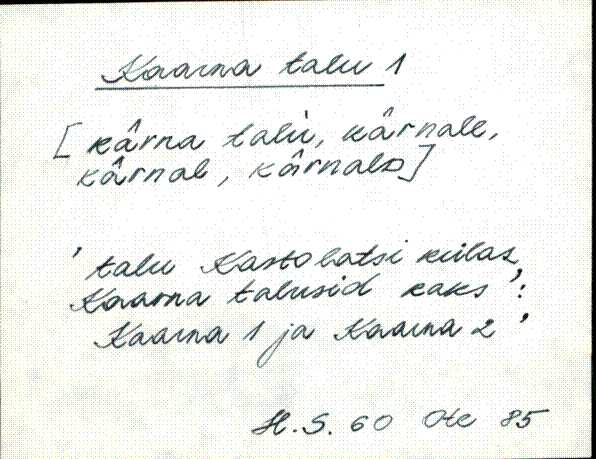 Kaarna talu 1
[kârna talù, kârnale,
kârnal, kârnalD]
'talu Kastolatsi külas,
Kaarna talusid kaks':
Kaarna 1 ja Kaarna 2'
H.S. 60 Ote 85